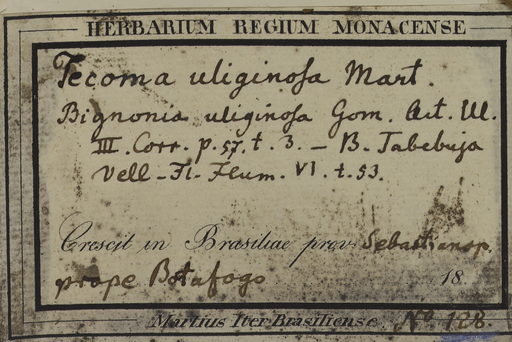 HERBARIUM REGIUM MONACENSE
Tecoma uliginosa Mart.
Bignonia uliginosa Gom. Act. Ul.
III. Corr. p. 57. t. 3. – B. Tabebuja
Vell - Fl - Flum. VI. t. 53.
Crescit in Brasiliae prov. Sebastianop.
prope Botafogo 18
Martius Iter Brasiliense. No. 128.